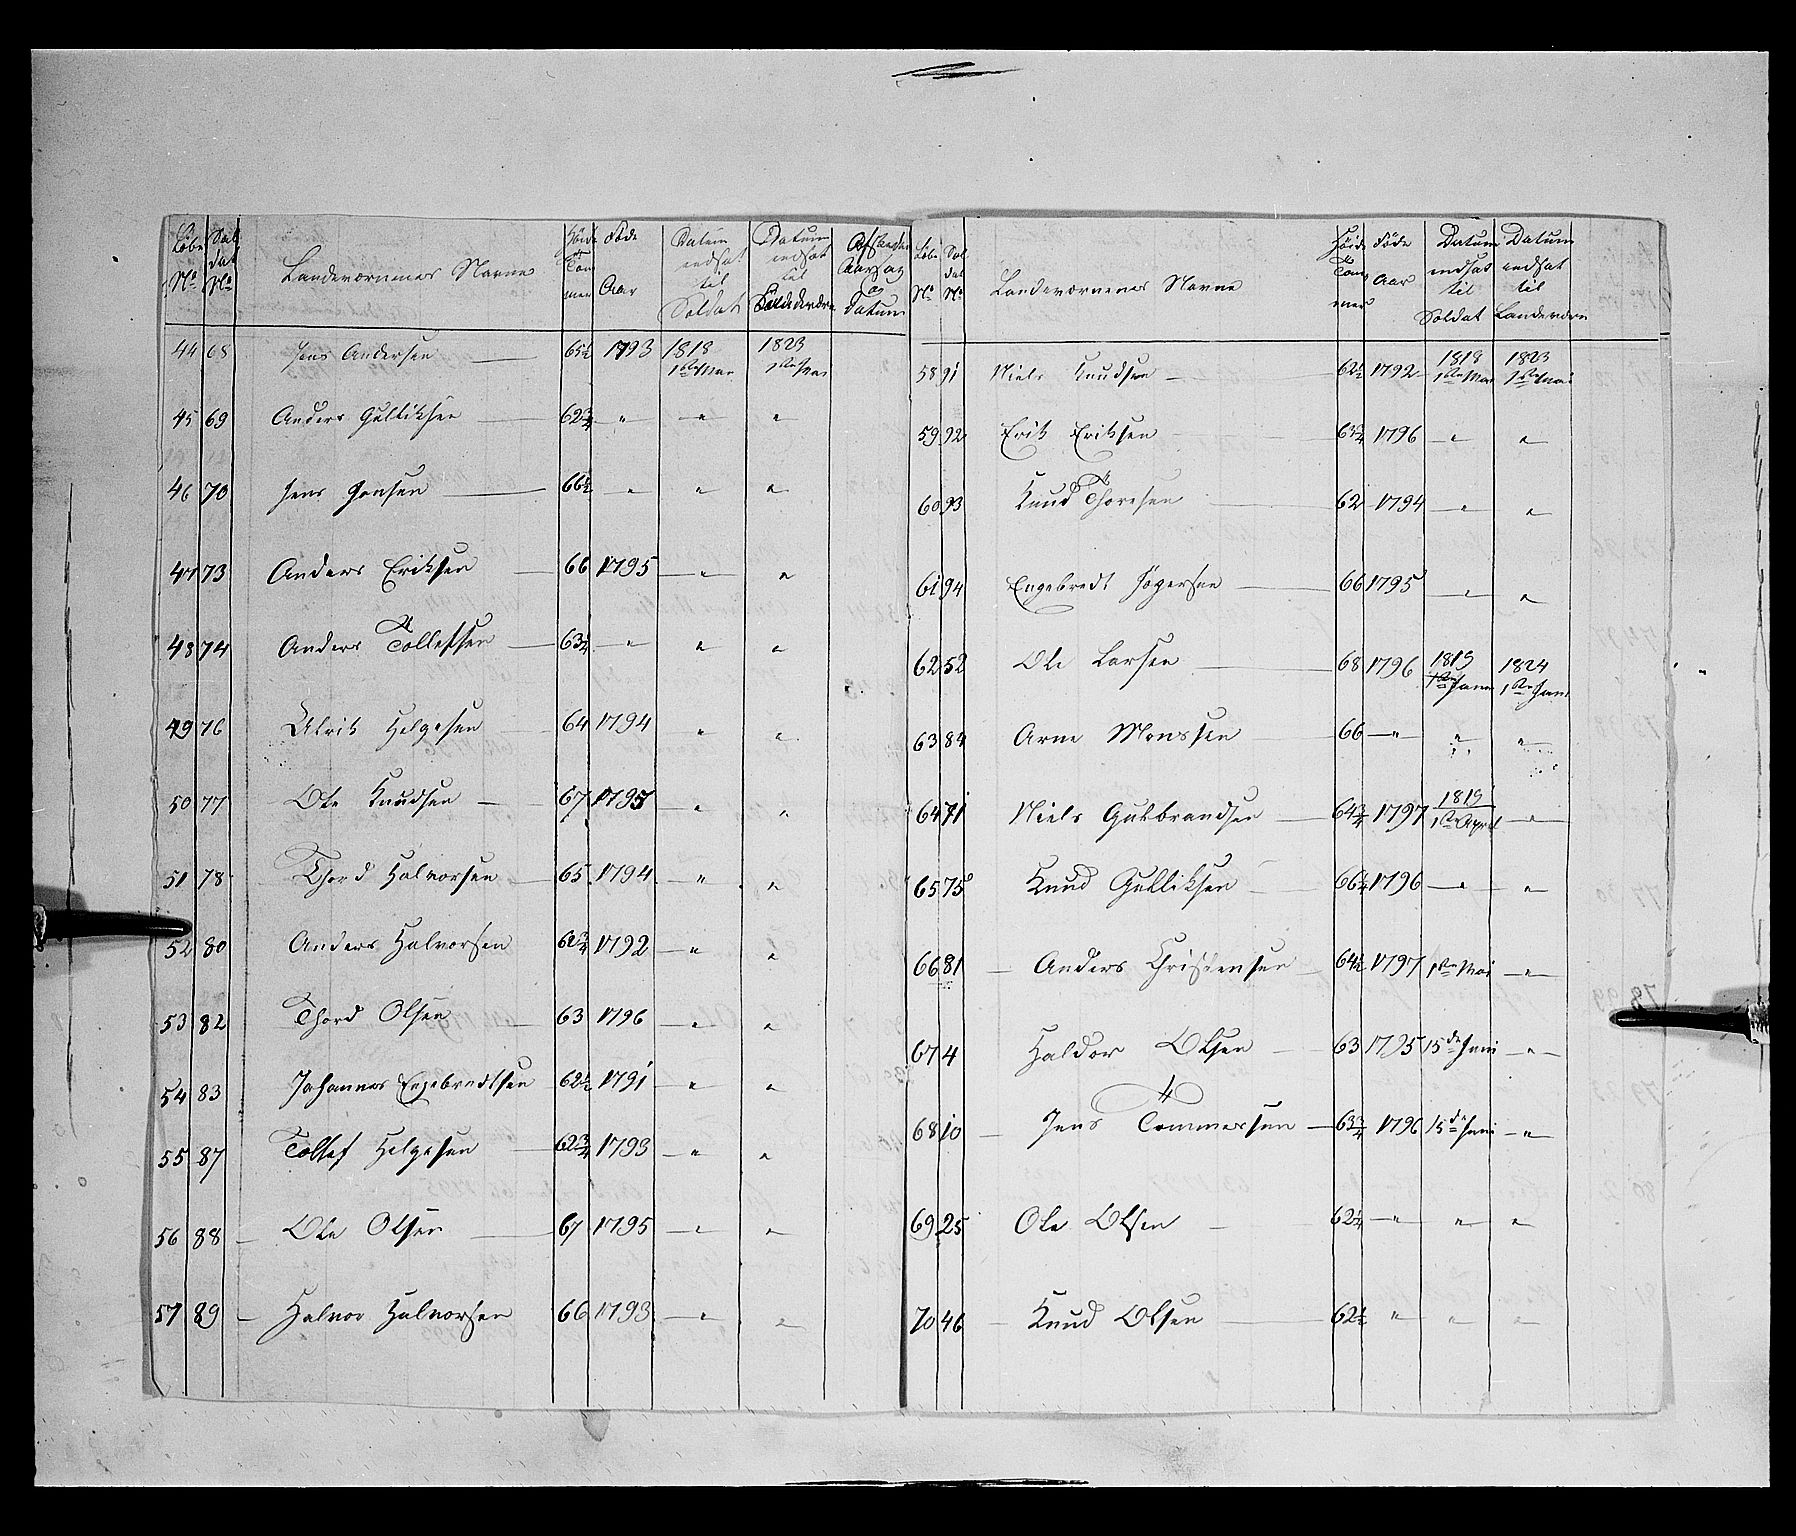 Løbe No Sol dat No Landeværnenes Navne Høide Tommer Føde Aar Datum indsat til Soldat Datum indsat til Landeværn Afskeeds Aarsag og Datum
44 68 Jens Andersen 65½ 1793 1818 1ste Mai 1823 1ste Mai
45 69 Anders Gulliksen 62¾ " " "
46 70 Jens Jonsen 66½ " " "
47 73 Anders Eriksen 66 1795 " "
48 74 Anders Tollefsen 63¼ " " "
49 76 Ulrik Helgesen 64 1794 " "
50 77 Ole Knudsen 67 1795 " "
51 78 Thord Halvorsen 65 1794 " "
52 80 Anders Halvorsen 62¾ 1792 " "
53 82 Thord Olsen 63 1796 " "
54 83 Johannes Engebredtsen 62½ 1791 " "
55 87 Tollef Helgesen 62¾ 1793 " "
56 88 Ole Olsen 67 1795 " "
57 89 Halvor Halvorsen 66 1793 " "
Løbe No Sol dat No Landeværnenes Navne Høide Tommer Føde Aar Datum indsat til Soldat Datum indsat til Landeværn
58 91 Niels Knudsen 62½ 1792 1818 1ste Mai 1823 1ste Mai
59 92 Erik Eriksen 63¾ 1796 " "
60 93 Knud Thoresen 62 1794 " "
61 94 Engebredt Jøgersen 66 1795 " "
62 52 Ole Larsen 68 1796 1819 1ste Janu 1824 1ste Janu
63 84 Arne Monssen 66 " " "
64 71 Niels Gulbrandsen 64¾ 1797 1819 1ste April "
65 75 Knud Gulliksen 66¼ 1796 " "
66 81 Anders Christensen 64½ 1797 1ste Mai "
67 4 Haldor Olsen 63 1795 15de Juni "
68 10 Jens Tommersen 63¾ 1796 15de Juni "
69 25 Ole Olsen 62¼ " " "
70 46 Knud Olsen 62½ " " "